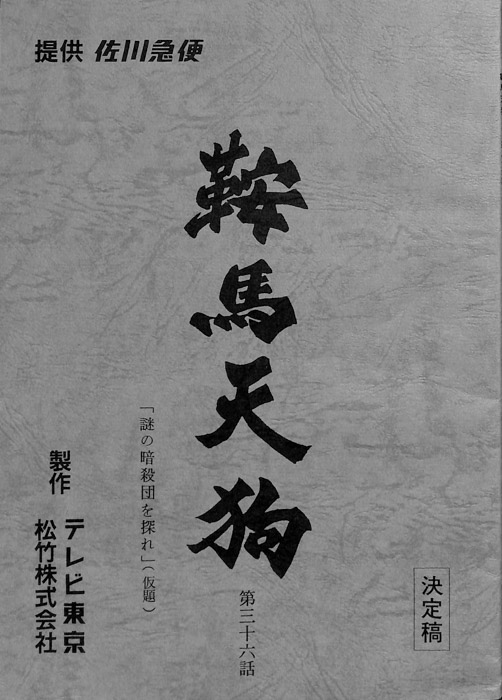 提供 佐川急便
鞍馬天狗
第三十六話
「謎の暗殺団を探れ」(仮題)
決定稿
製作
テレビ東京
松竹株式会社